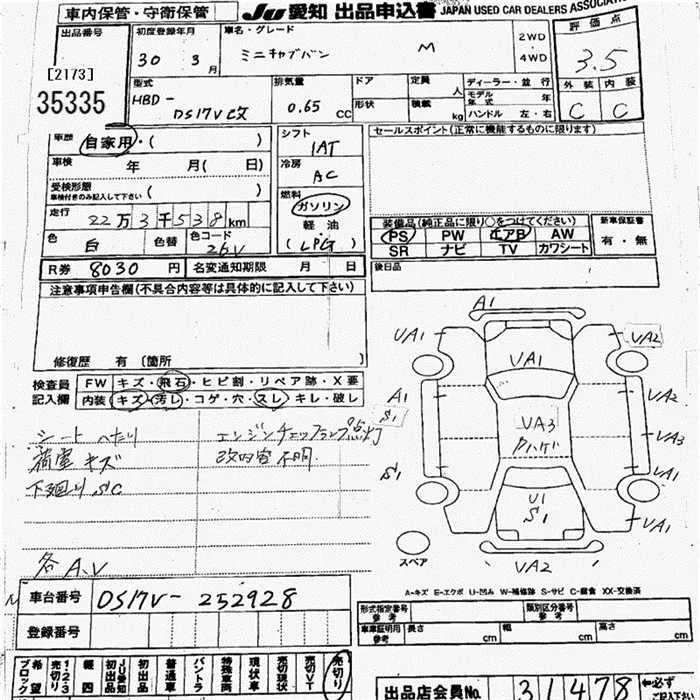 車内保管・守衛保管
JU 愛知 出品申込書 JAPAN USED CAR DEALERS ASSOCIATION
出品番号
[2173]
35335
初度登録年月
30年 3月
車名・グレード
ミニキャブバン M
2WD
4WD
評価点
3.5
外装 内装
C C
型式
HBD-
DS17V改
排気量
0.65 CC
ドア
形状
定員 人
積載 kg
ディーラー・並行
モデル年式 年
ハンドル 左・右
車歴 自家用・( )
車検 年 月( 日)
受検形態
車検付きのみ記入して下さい ( )
走行 22万3千538km
色 白 色替 色コード 26V
R券 8030 円 名変通知期限 月 日
シフト
IAT
冷房
AC
燃料
ガソリン
軽油
(LPG)
セールスポイント(正常に機能するものに限ります)
装備品(純正品に限り○をつけてください)
PS PW エアB AW
SR ナビ TV カワシート
新車保証書
有・無
後日品
注意事項申告欄(不具合内容等は具体的に記入して下さい)
修復歴 有 〔箇所 〕
検査員記入欄
FW キズ・飛石・ヒビ割・リペア跡・X要
内装 キズ・汚レ・コゲ・穴・スレ・キレ・破レ
シートへたり
荷室キズ
下廻り SC
エンジンチェックランプ点灯
改内容不明.
各A.V
A1
VA1 VA2
VA1
A1 VA2
S1
VA3
クハゲ
VA3
S1 VA1
U1
S1
VA1
VA2
スペア
A-キズ E-エクボ U-凹み W-補修跡 S-サビ C-腐食 XX-交換済
車台番号 DS17V-252928
登録番号
形式指定番号 参考
類別区分番号 参考
車庫証明用 参考 長さ cm 幅 cm 高さ cm
希望ブロック
1・2・3売切り
軽四
JU愛知初出品
初出品
普通車
バントラ
特殊車両
現状車
売切現状
売切VT
売切り
出品店会員No. 31478 ←必ずご記入下さい